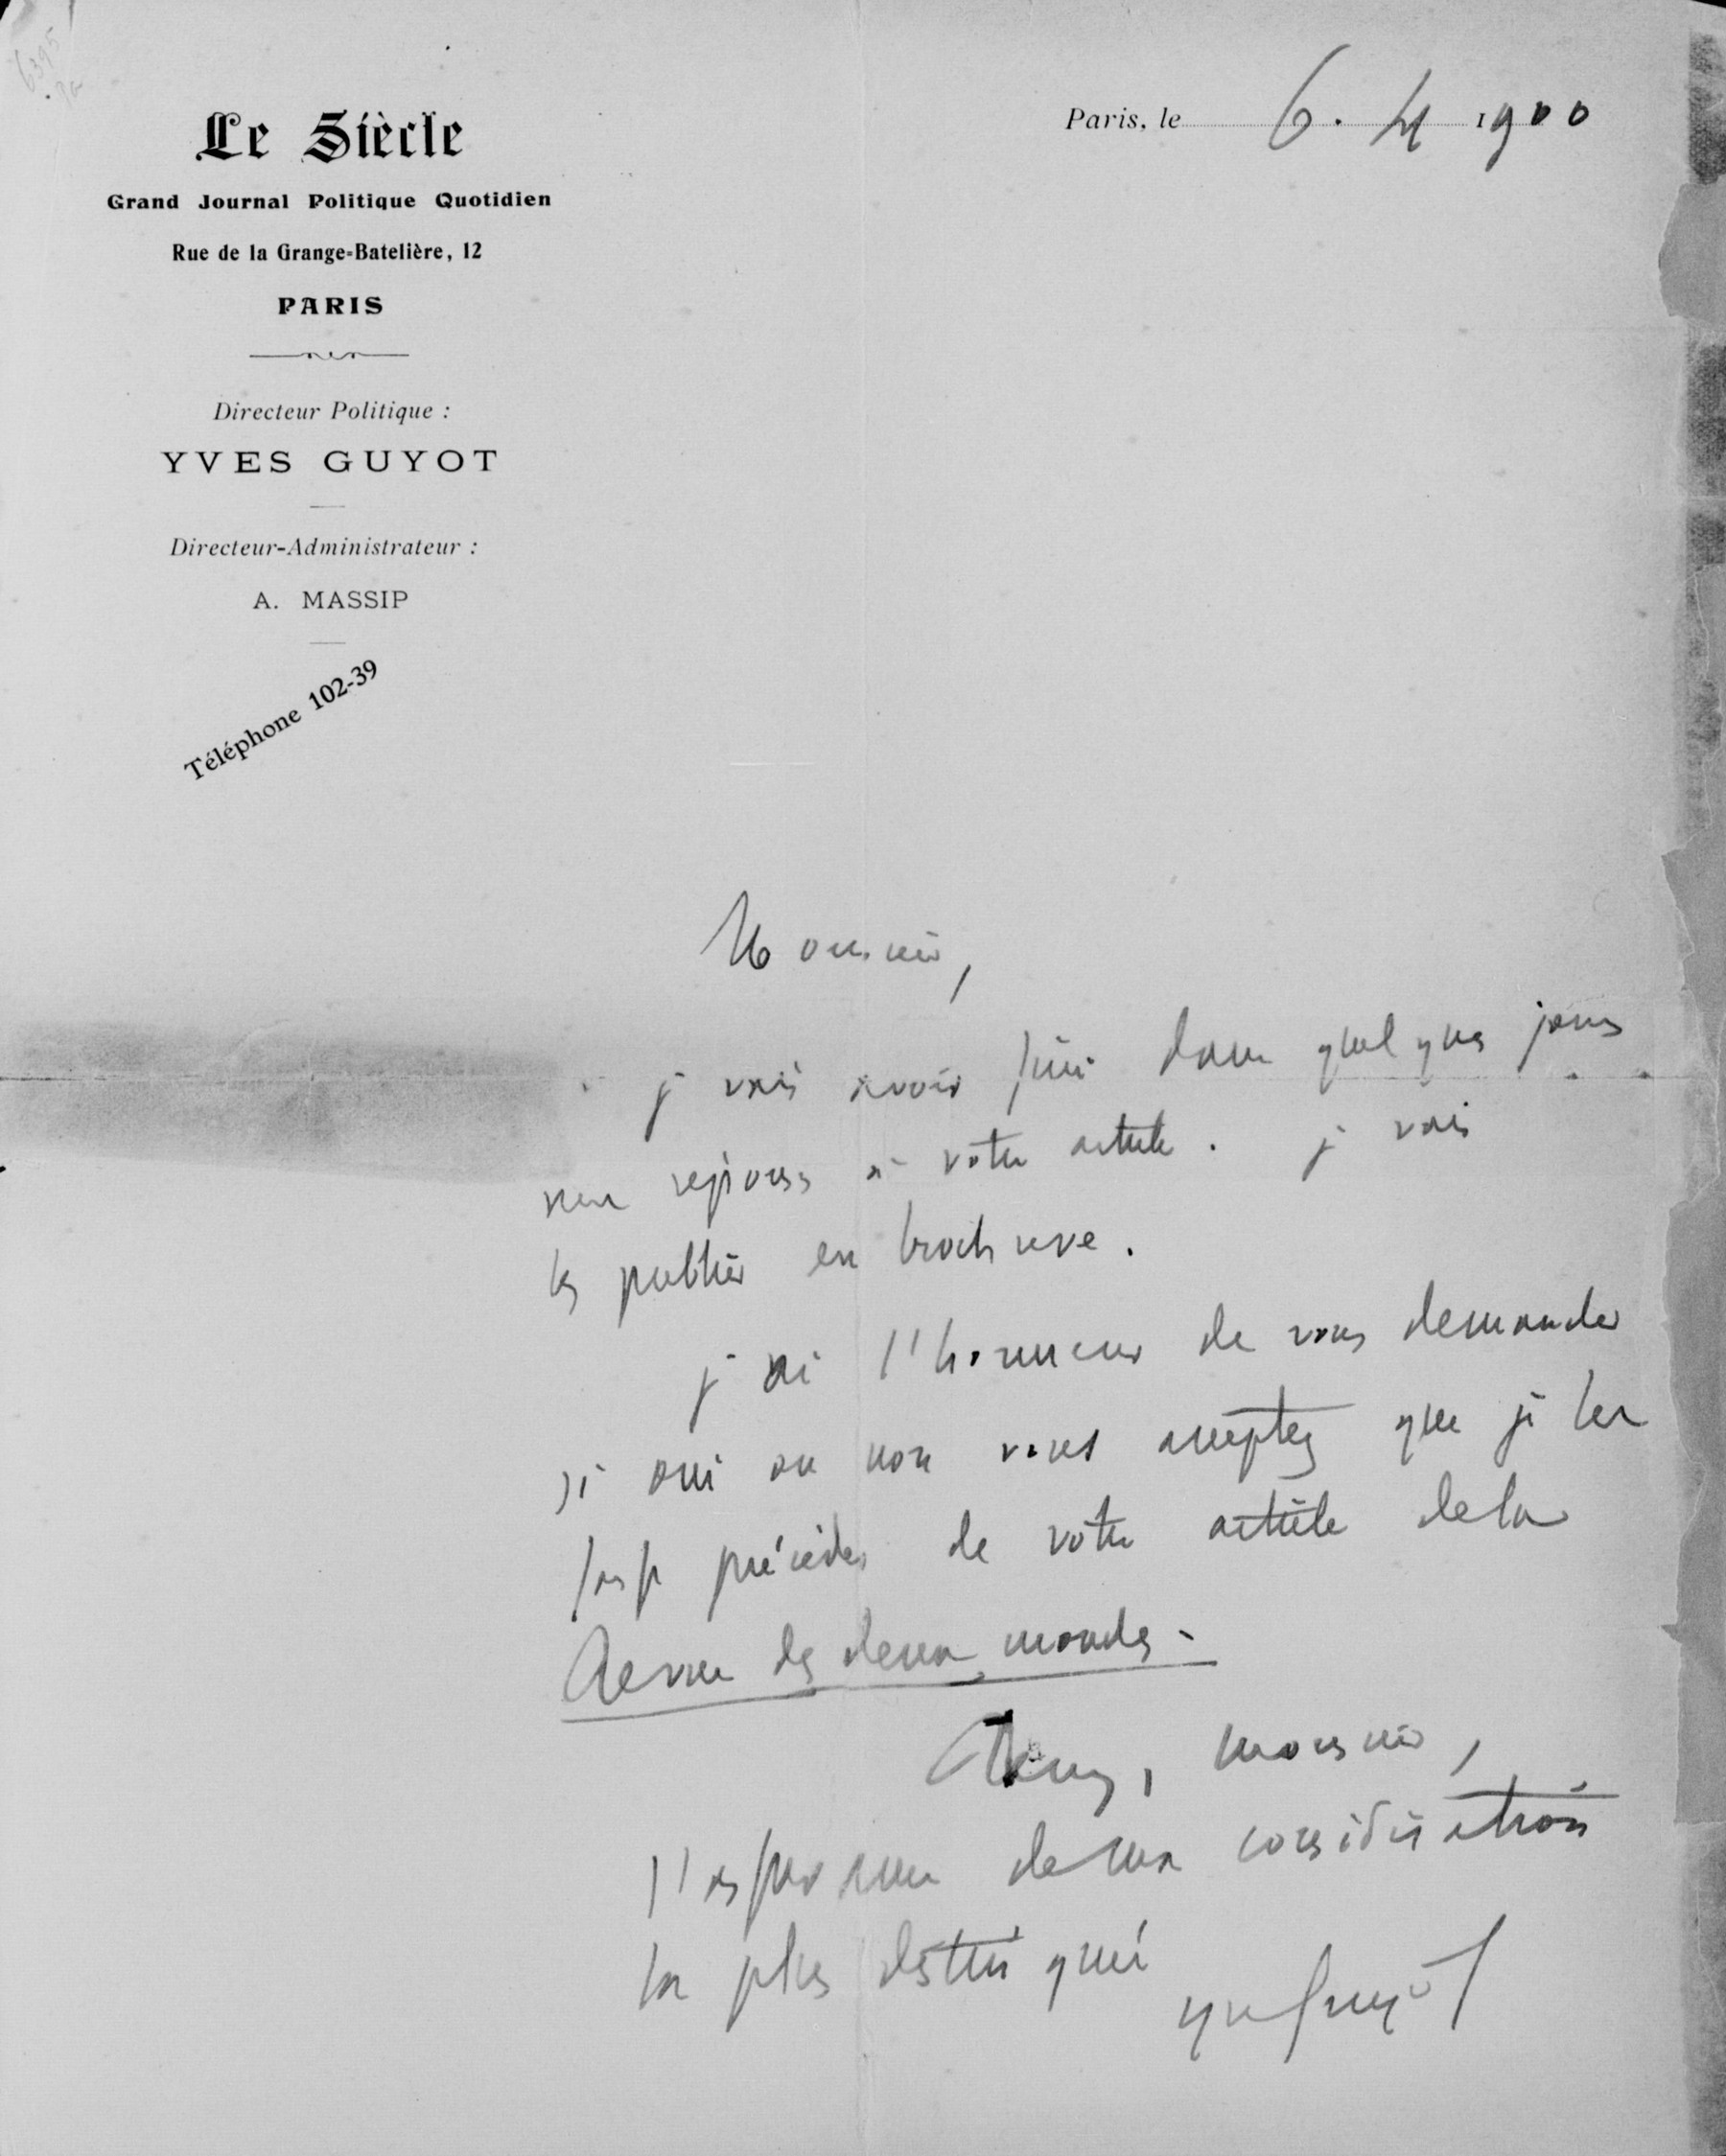 Le Siècle
Grand Journal Politique Quotidien
Rue de la Grange-Batelière, 12
PARIS
Directeur Politique :
YVES GUYOT
Directeur-Administrateur :
A. MASSIP
Téléphone 102-39
Paris, le 6. 4 1900
Monsieur,
je vais avoir fini dans quelques jours
ma réponse à votre article. je vais
la publier en brochure.
j'ai l'honneur de vous demander
si oui ou non vous acceptez que je la
fasse précéder de votre article de la
Revue des deux mondes.
Agréez, monsieur,
l'assurance de ma considération
la plus distinguée
Yves Guyot